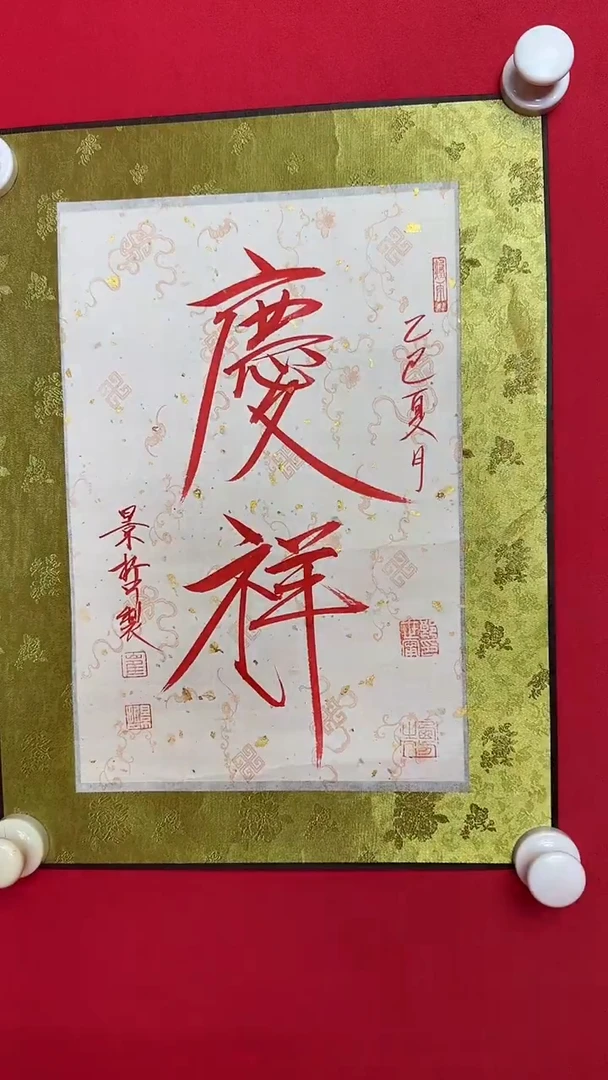 乙巳夏月
慶祥
景哲製